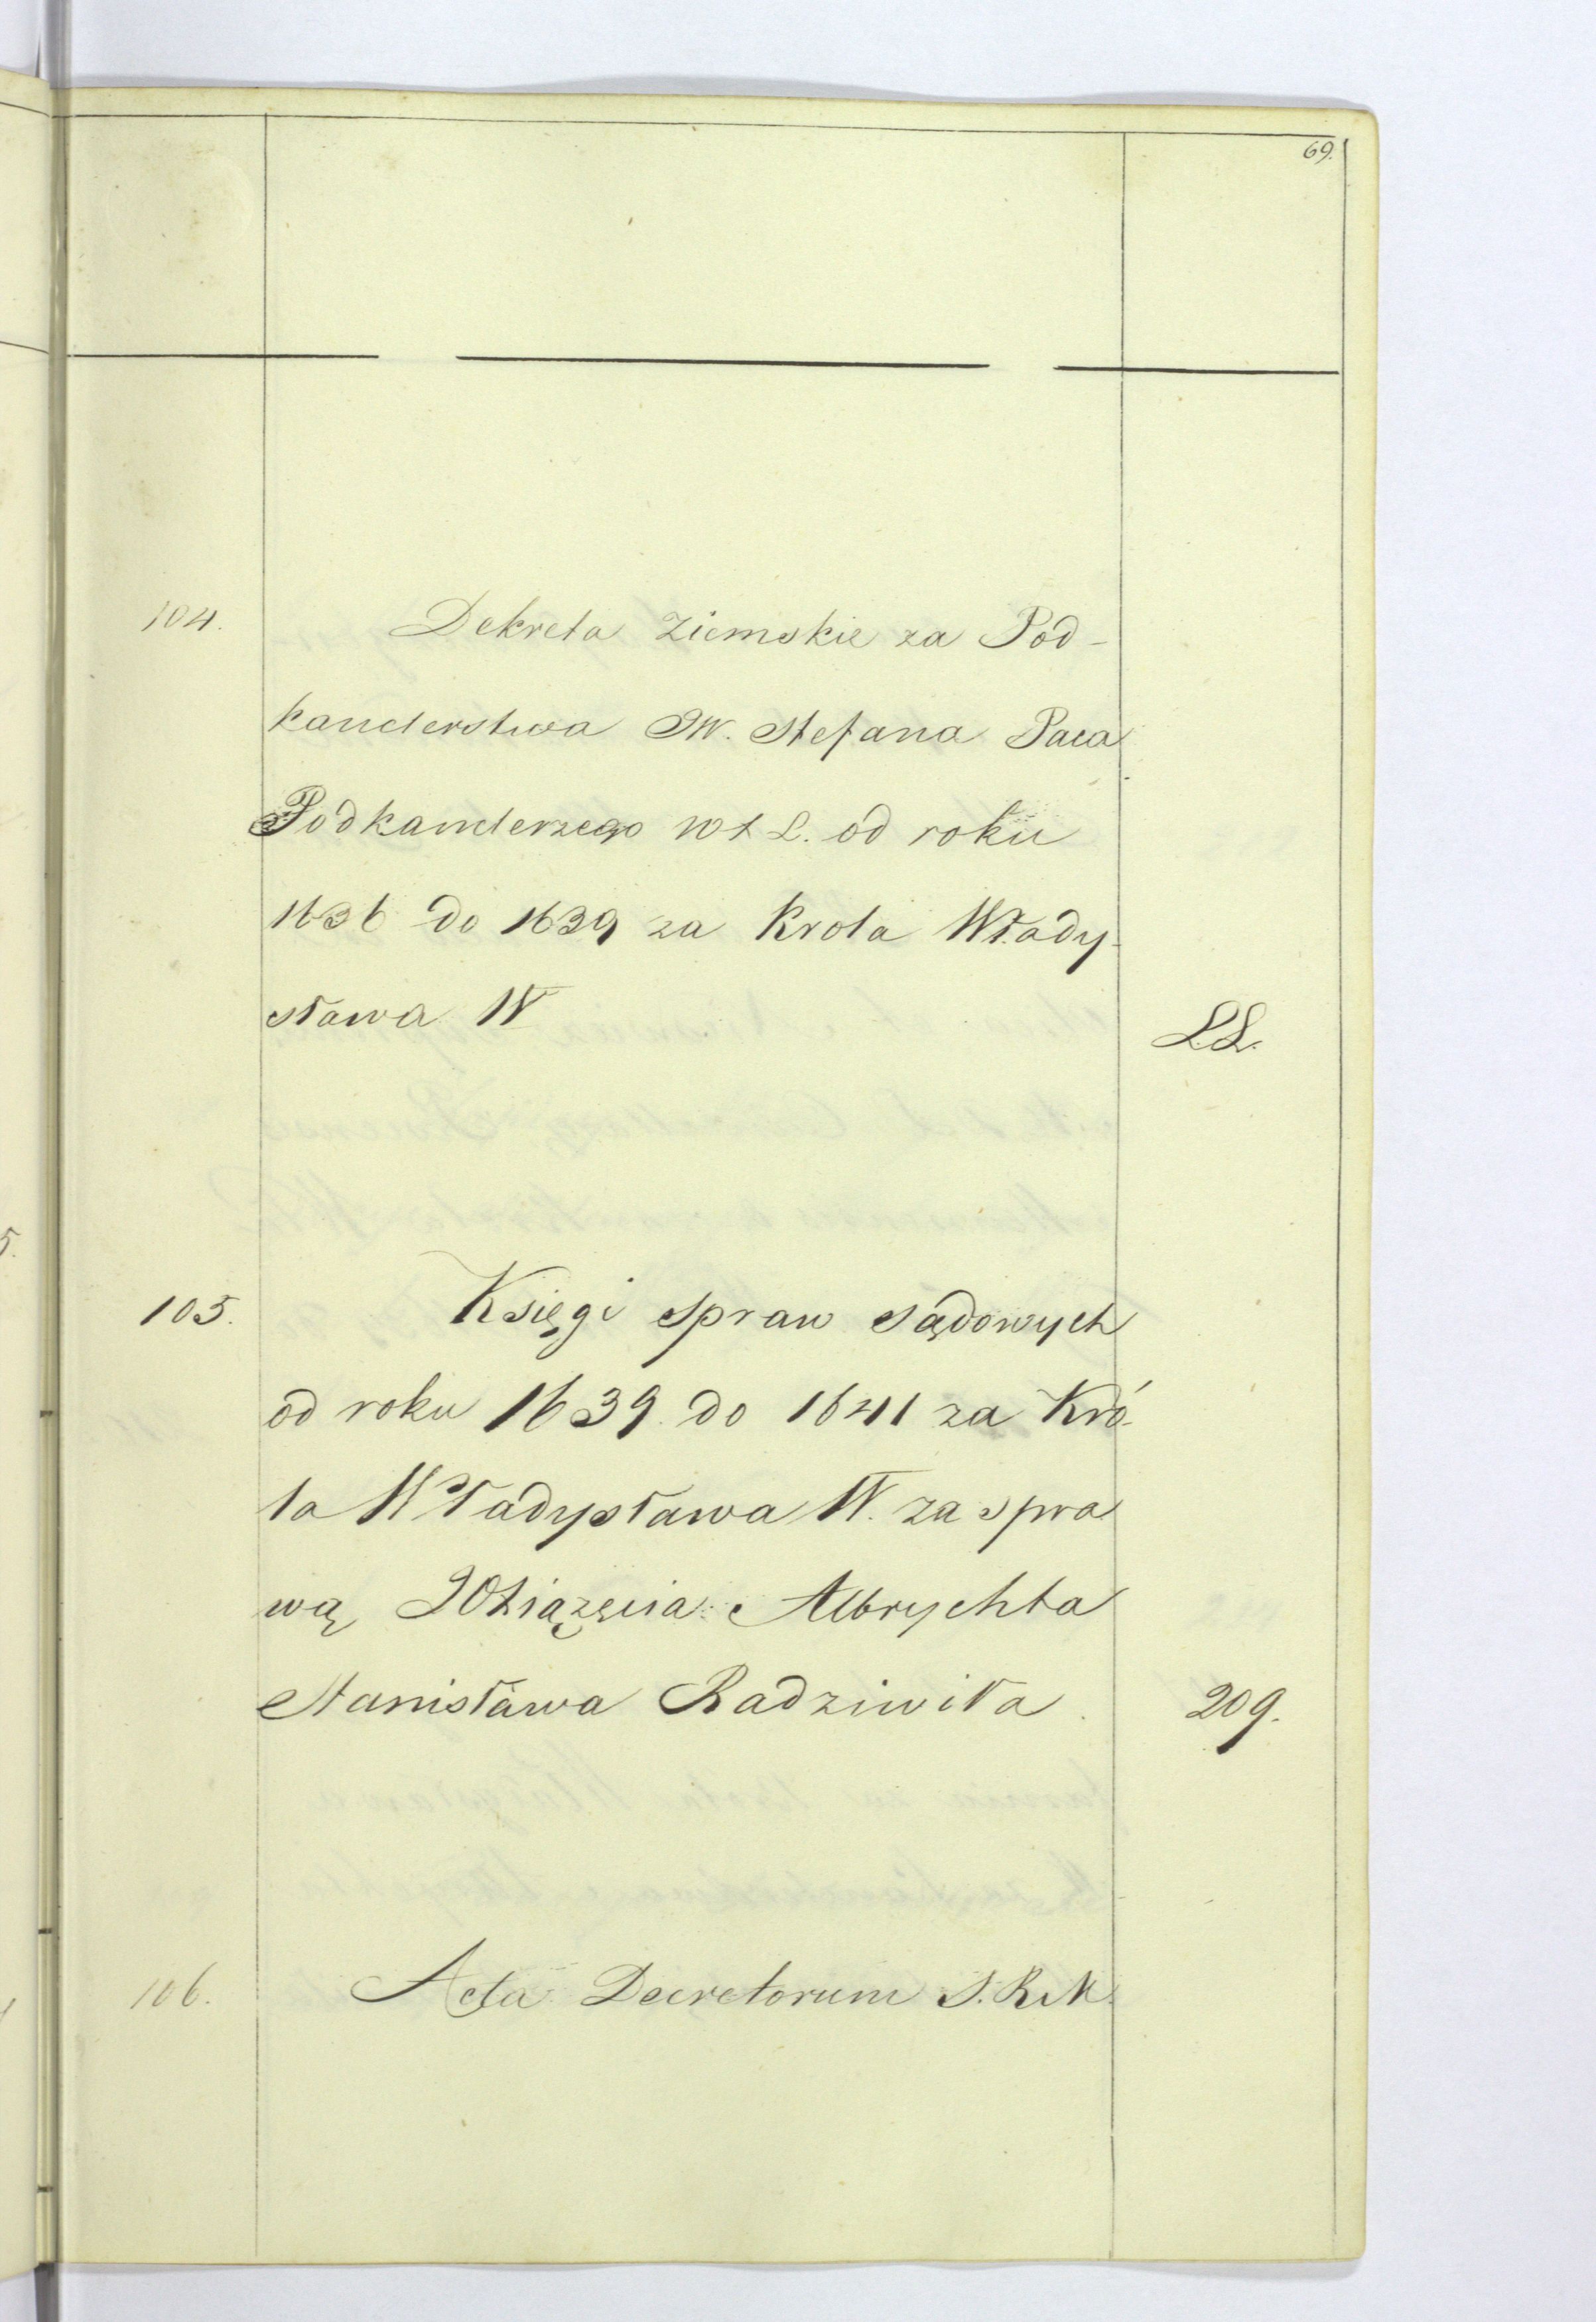 69.
104. Dekreta Ziemskie za Pod-
kanclerstwa JW. Stefana Paca
Podkanclerzego WXL. od roku
1636 do 1639 za Krola Włady-
sława IV
L.L.
105. Księgi spraw sądowych
od roku 1639. do 1641 za Kró-
la Władysława IV. za spra
wą Xiążęcia Albrychta
Stanisława Radziwiła. 209.
106. Acta Decretorum S. R. M.